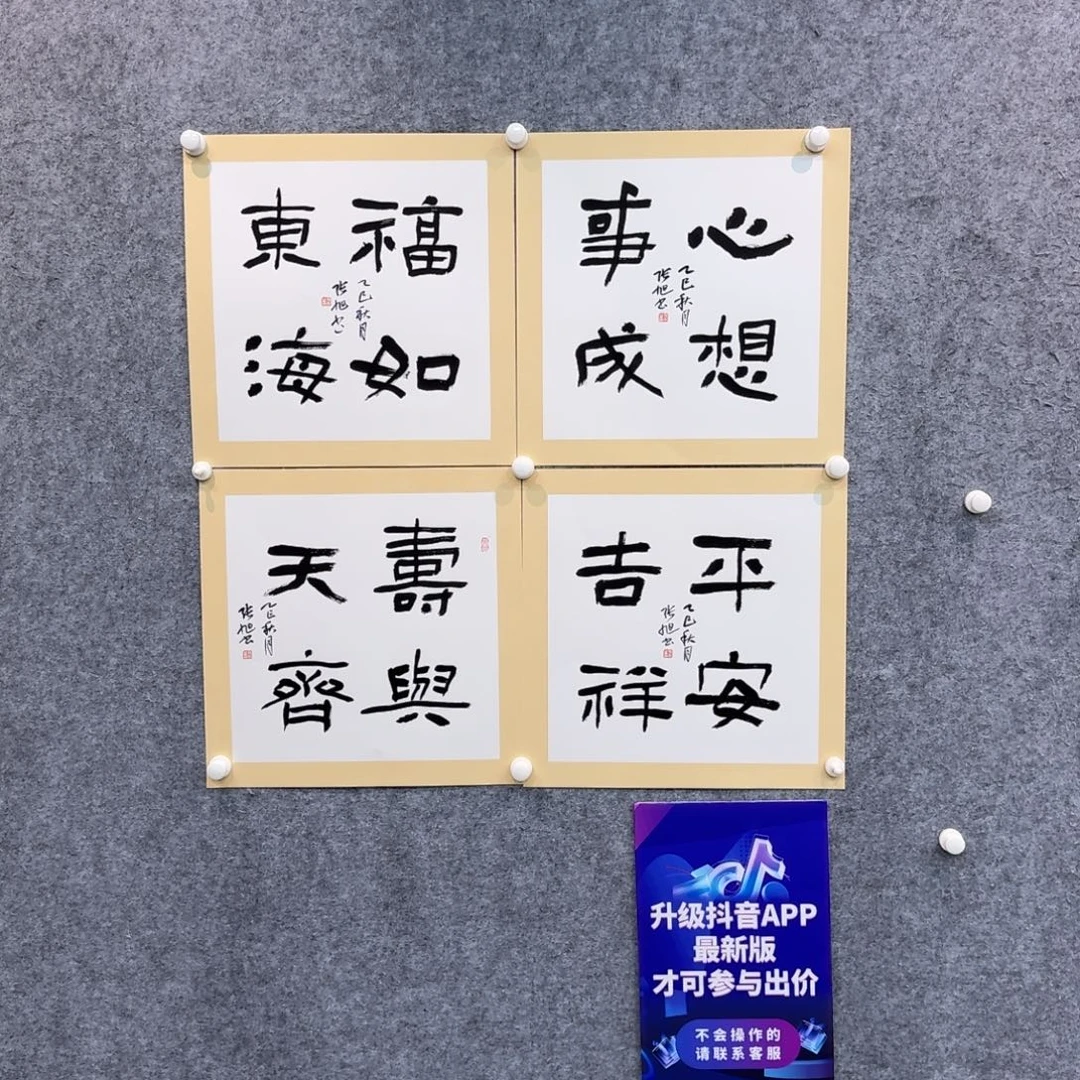 福如
東海
乙巳秋月
张旭书
心想
事成
乙巳秋月
张旭书
壽與
天齊
乙巳秋月
张旭书
平安
吉祥
乙巳秋月
张旭书
升级抖音APP
最新版
才可参与出价
不会操作的
请联系客服